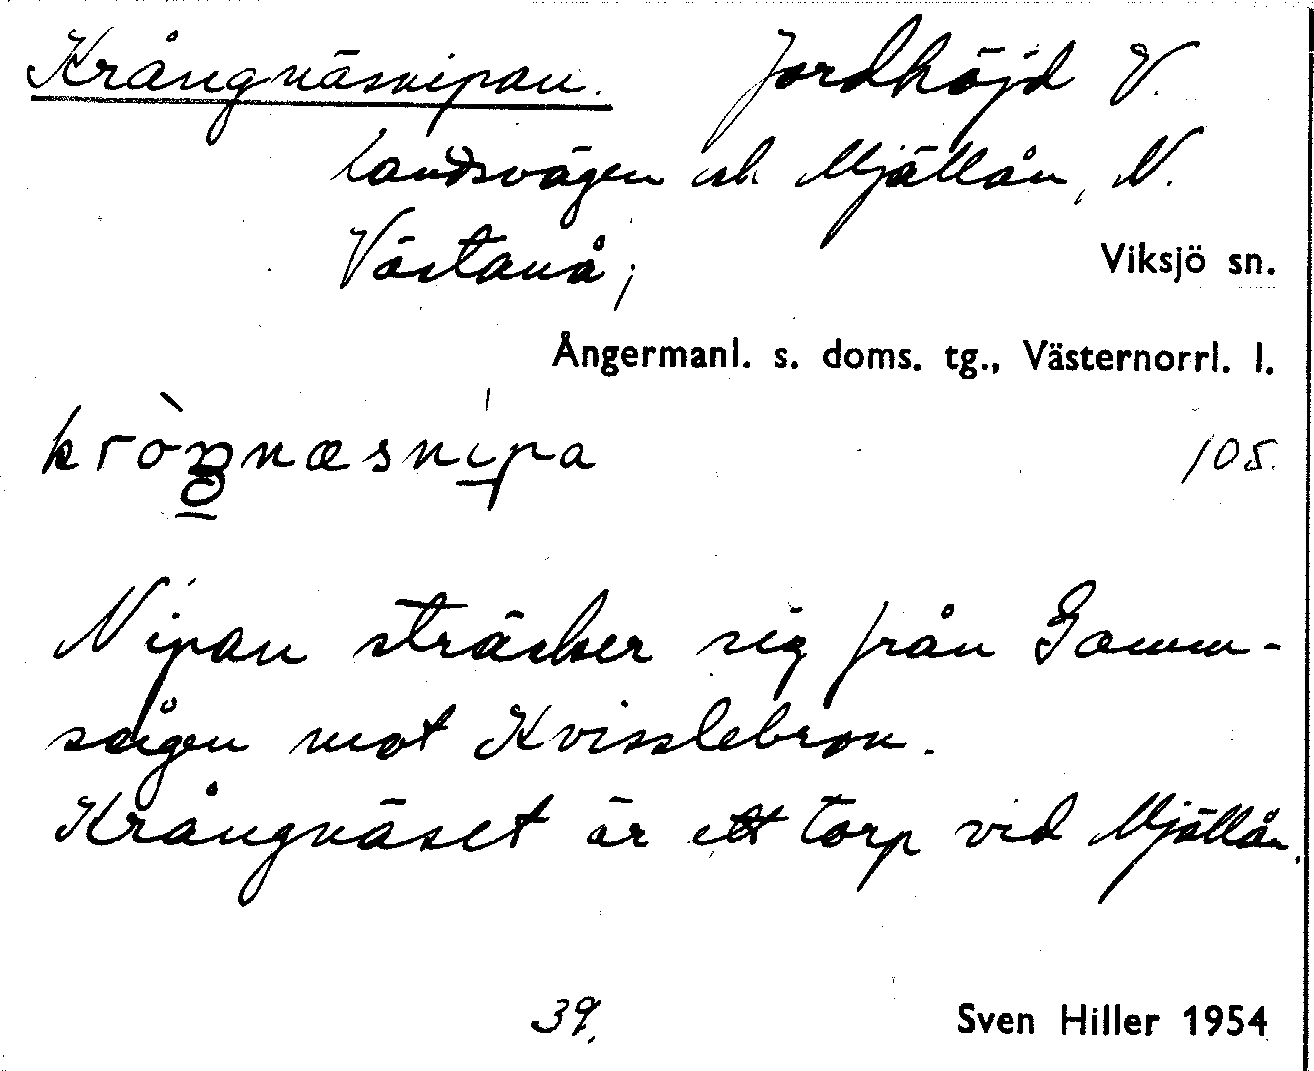 Krångnäsnipan. Jordhöjd V.
landsvägen och Mjällån, N.
Västanå;
Viksjö sn.
Ångermanl. s. doms. tg., Västernorrl. l.
105.
Nipan sträcker sig från Gamm-
sågen mot Kvisslebron.
Krångnäset är ett torp vid Mjällån.
39.
Sven Hiller 1954